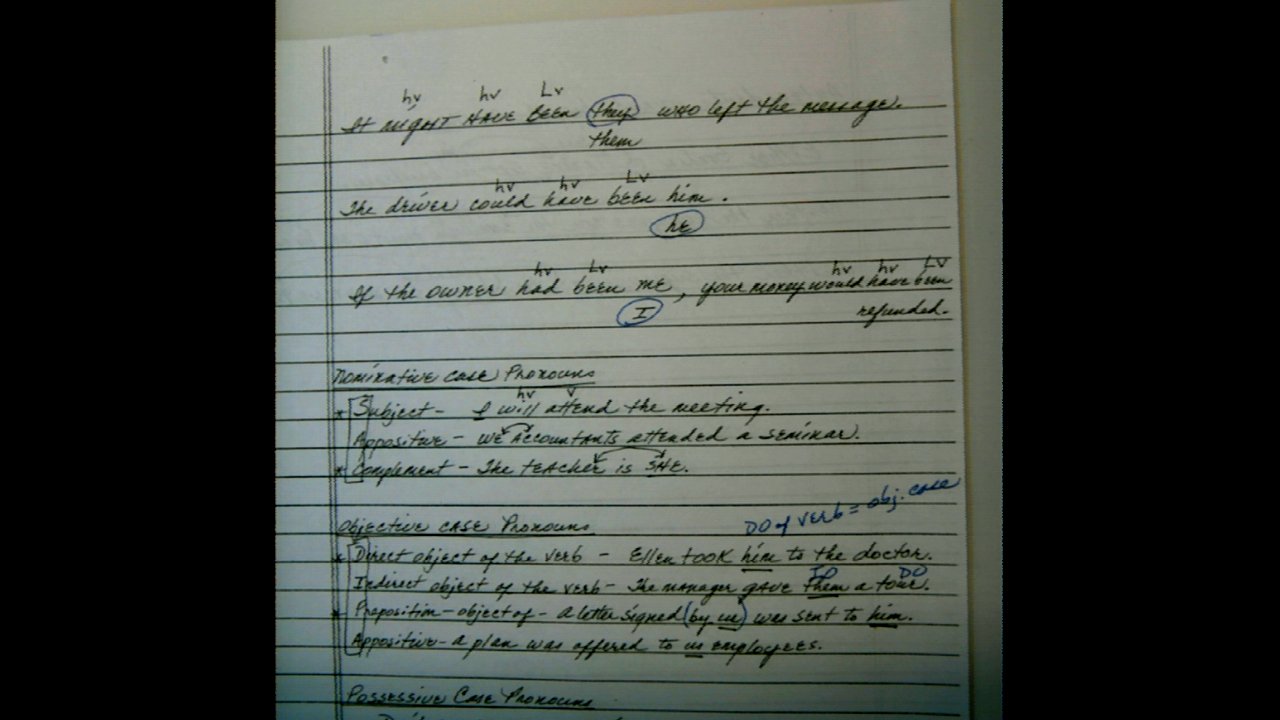 hv hv Lv
It might have been they who left the message.
them
hv hv Lv
The driver could have been him.
he
hv Lv hv hv LV
If the owner had been me, your money would have been
I refunded.
Nominative Case Pronouns
hv v
* Subject - I will attend the meeting.
Appositive - we Accountants attended a seminar.
* Complement - The teacher is SHE.
DO of verb = obj. case
Objective Case Pronouns
* Direct object of the verb - Ellen took him to the doctor.
IO DO
Indirect object of the verb - The manager gave them a tour.
* Preposition - object of - a letter signed (by us) was sent to him.
Appositive - a plan was offered to us employees.
Possessive Case Pronouns